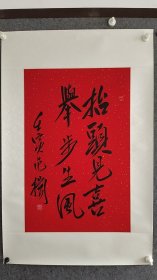 抬頭見喜
舉步生風
壬寅虎